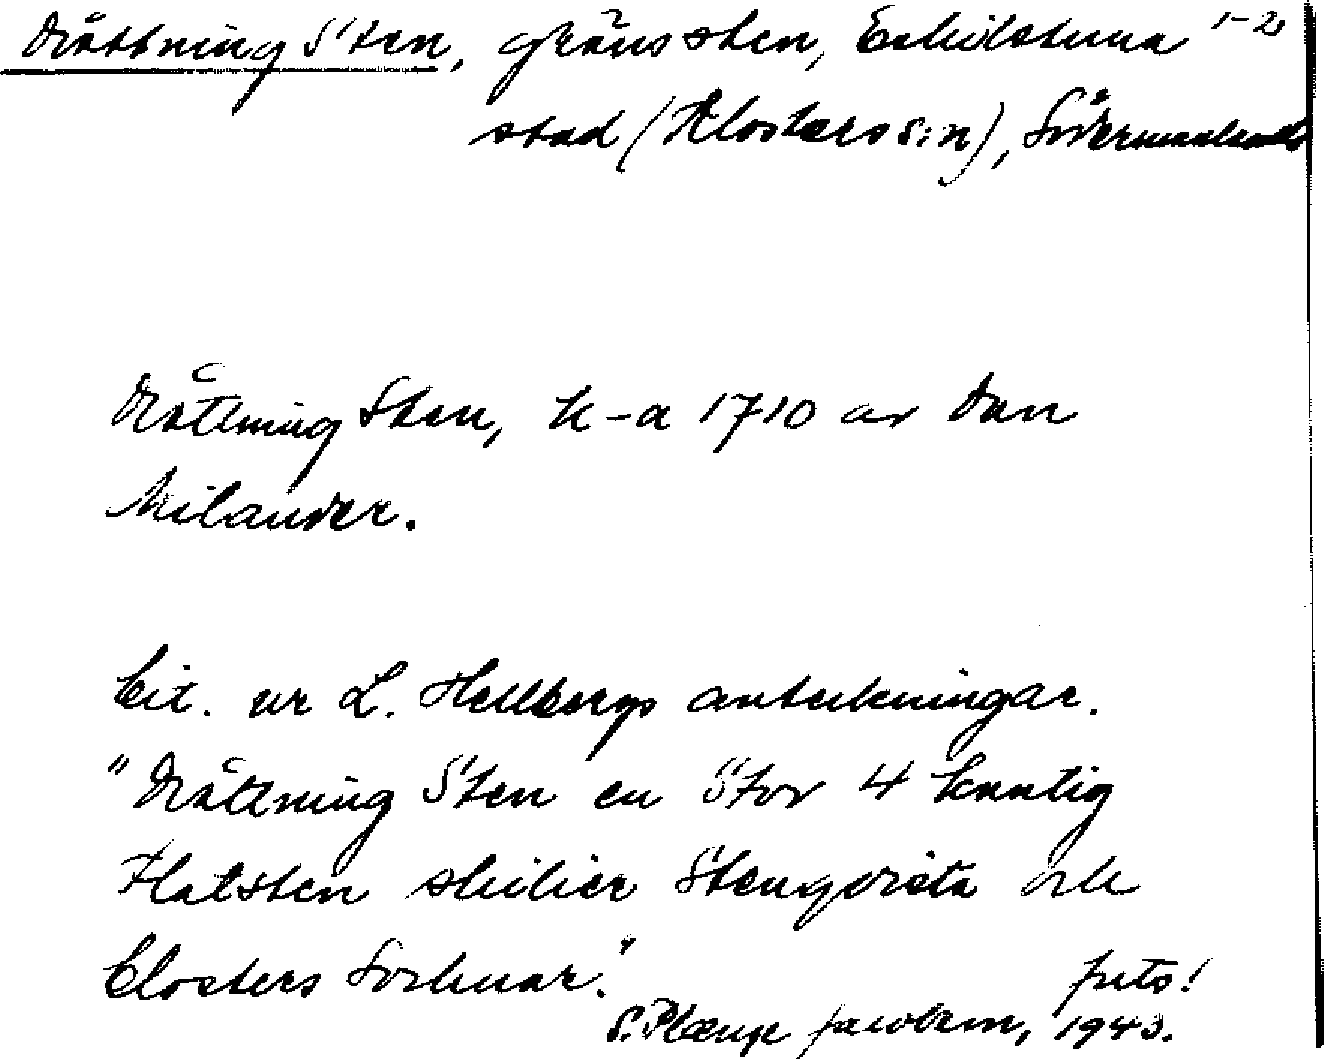 Dråttning Sten, gränssten, Eskilstuna 1-2
stad (Klosters s:n), Södermanland
Dråttning Sten, k-a 1710 av Dan
Milander.
Cit. ur L. Hellbergs anteckningar.
"Dråttning Sten en Stor 4 kantig
Flatsten skilier Stenqvista och
Closters Soknar."
forts!
S. Plænge Jacobson, 1943.